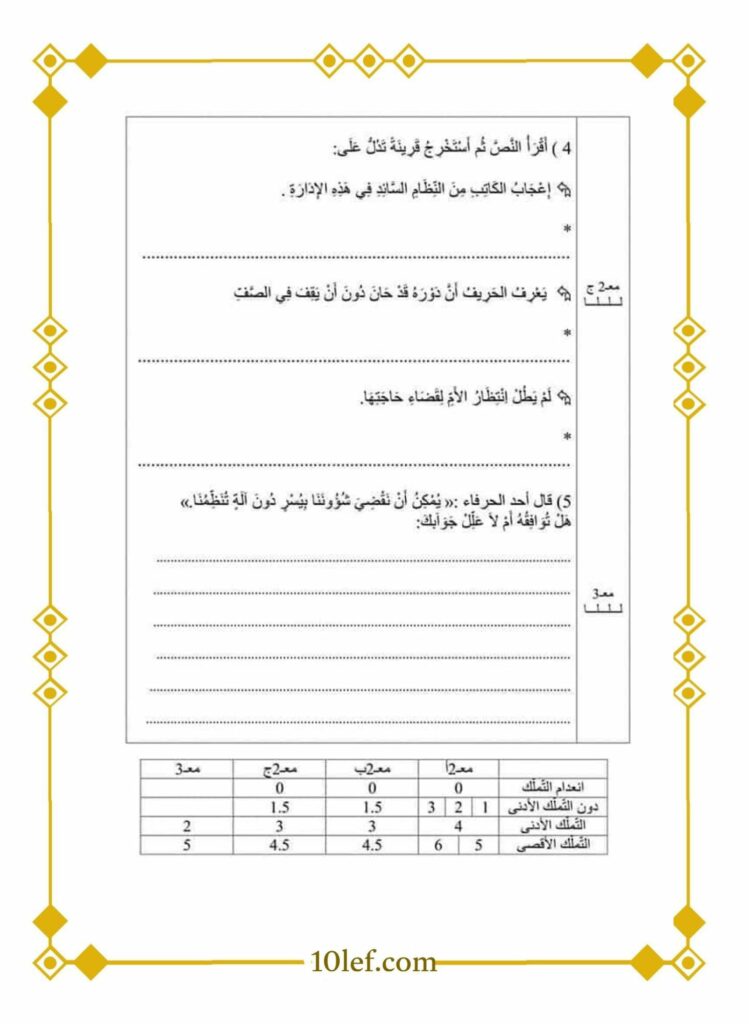 4 ) أَقْرَأُ النَّصَّ ثُم أَسْتَخْرِجُ قَرِينَةً تَدُلُّ عَلَى:
إعْجَابُ الكَاتِبِ مِنَ النِّظَامِ السَّائِدِ فِي هَذِهِ الإدَارَةِ .
*
معـ2 ج
يَعْرِفُ الحَرِيفُ أَنَّ دَوْرَهُ قَدْ حَانَ دُونَ أَنْ يَقِفَ فِي الصَّفِّ
*
لَمْ يَطُلْ اِنْتِظَارُ الأُمِّ لِقَضَاءِ حَاجَتِهَا.
*
5) قال أحد الحرفاء :« يُمْكِنُ أَنْ نَقْضِيَ شُؤُونَنَا بِيُسْرٍ دُونَ آلَةٍ تُنَظِّمُنَا.»
هَلْ تُوَافِقُهُ أَمْ لاَ عَلِّلْ جَوَابَكَ:
معـ3
معـ2أ معـ2ب معـ2ج معـ3
انعدام التّملّك 0 0 0
دون التّملّك الأدنى 1 2 3 1.5 1.5
التّملّك الأدنى 4 3 3 2
التّملّك الأقصى 5 6 4.5 4.5 5
10lef.com